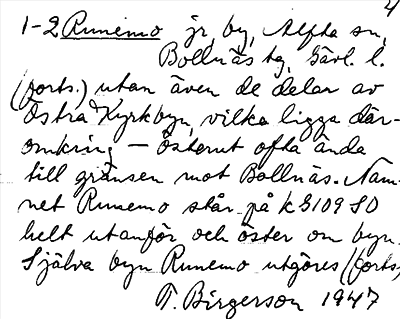 4
1-2 Runemo jr, by, Alfta sn,
Bollnäs tg, Gävl. l.
(forts.) utan även de delar av
Östra Kyrkbyn, vilka ligga där-
omkring – österut ofta ända
till gränsen mot Bollnäs. Nam-
net Runemo står på k G109 SO
helt utanför och öster om byn.
Själva byn Runemo utgöres (forts.)
T. Birgerson 1947